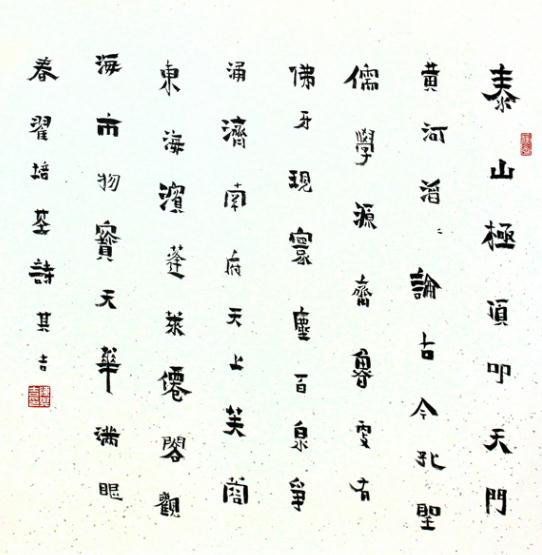 泰山極頂叩天門
黄河滔〻論古今孔聖
儒學源齊魯更有
佛牙現寰塵百泉爭
涌濟南府天上
東海濱蓬萊僊閣觀
海市物寶天華滿眼
春翟培基詩其吉